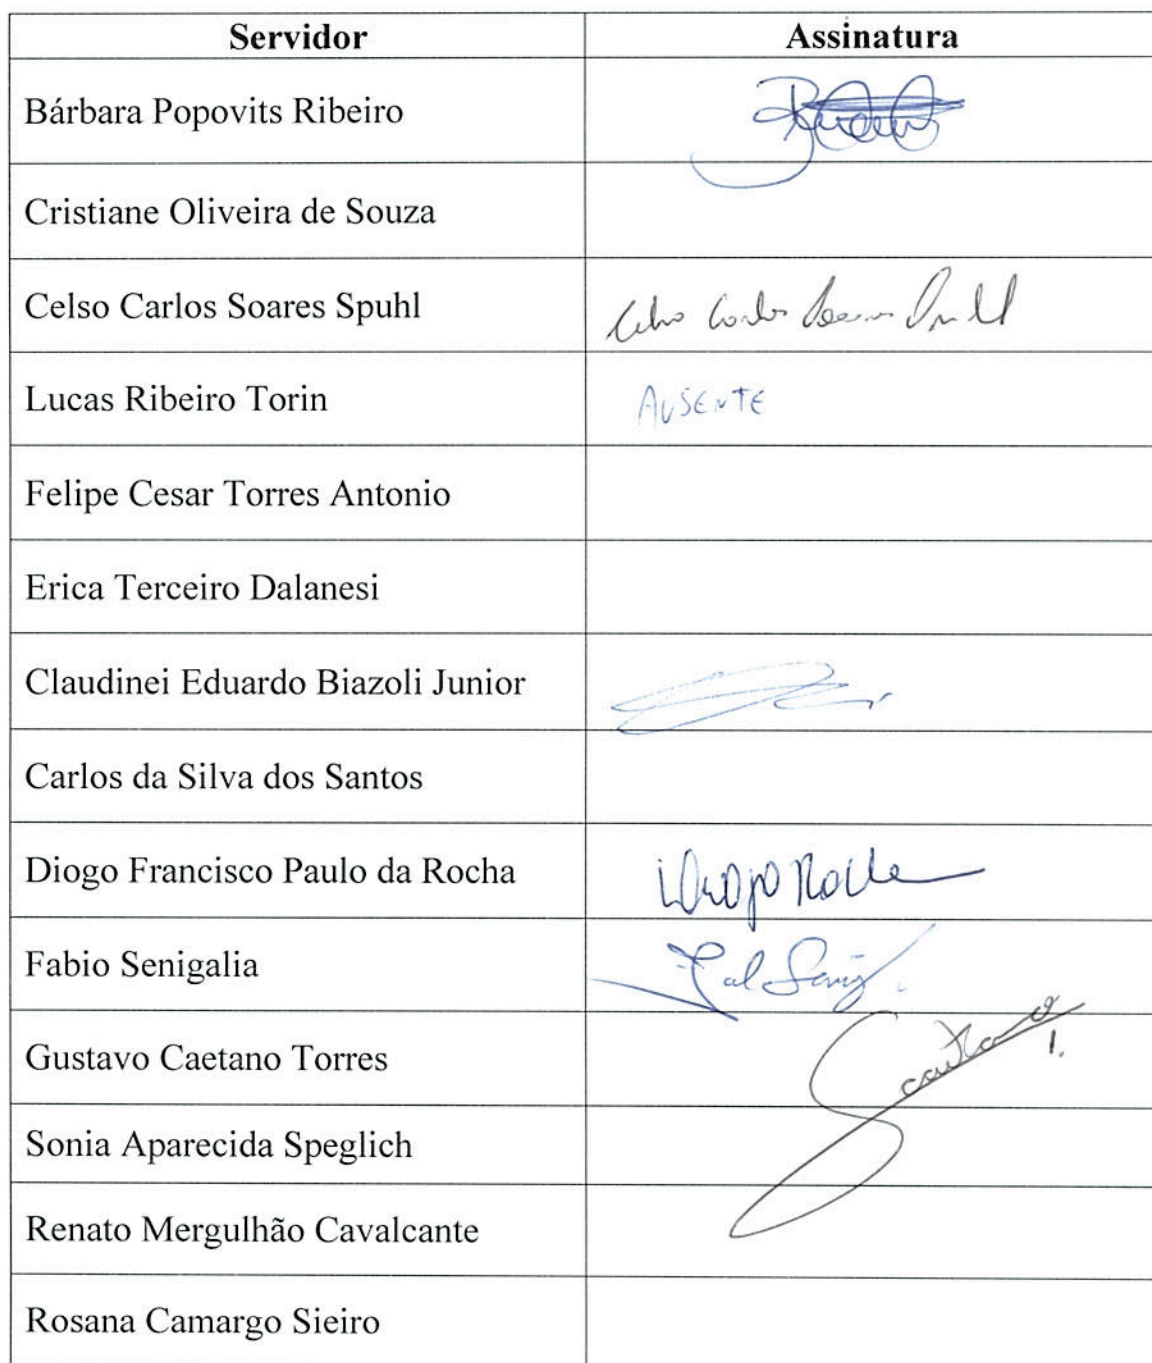 Servidor Assinatura
Bárbara Popovits Ribeiro
Cristiane Oliveira de Souza
Celso Carlos Soares Spuhl Celso Carlos Soares Spuhl
Lucas Ribeiro Torin AUSENTE
Felipe Cesar Torres Antonio
Erica Terceiro Dalanesi
Claudinei Eduardo Biazoli Junior
Carlos da Silva dos Santos
Diogo Francisco Paulo da Rocha Diogo Rocha
Fabio Senigalia
Gustavo Caetano Torres
Sonia Aparecida Speglich
Renato Mergulhão Cavalcante
Rosana Camargo Sieiro